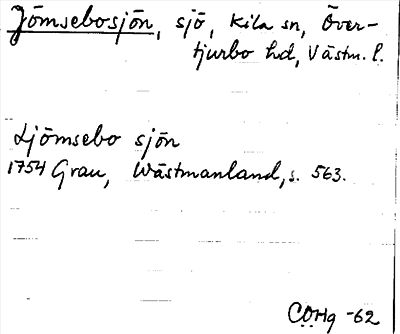 Jömsebosjön, sjö, Kila sn, Över-
tjurbo hd, Västm. l.
Ljömsebo sjön
1754 Grau, Wästmanland, s. 563.
COHg -62